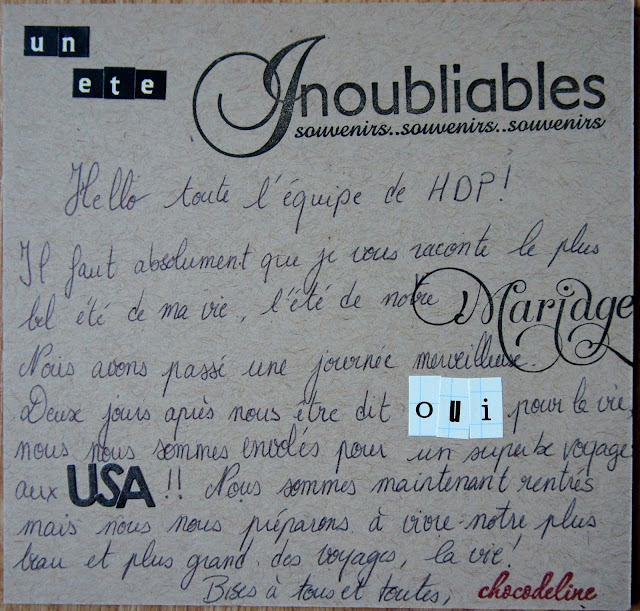 un
ete
Inoubliables
souvenirs..souvenirs..souvenirs
Hello toute l'équipe de HDP!
Il faut absolument que je vous raconte le plus
bel été de ma vie, l'été de notre Mariage
Nous avons passé une journée merveilleuse.
Deux jours après nous être dit oui pour la vie,
nous nous sommes envolés pour un superbe voyage
aux USA !! Nous sommes maintenant rentrés
mais nous nous préparons à vivre notre plus
beau et plus grand des voyages, la vie!
Bises à tous et toutes, chocodeline